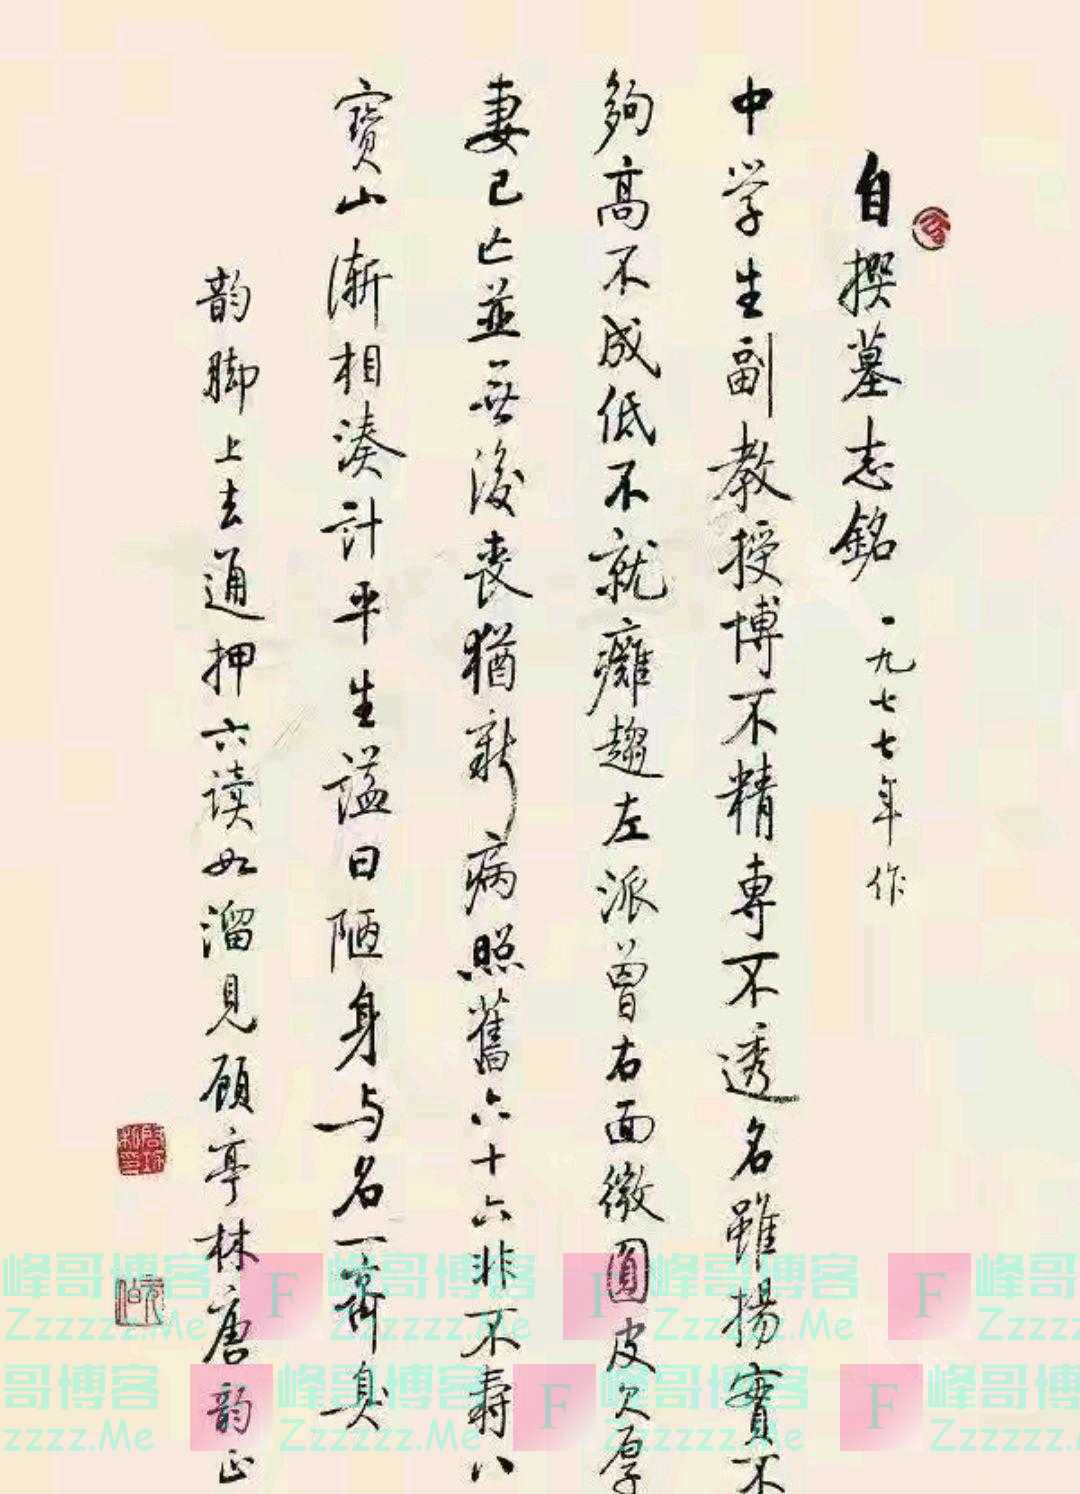 自撰墓志銘 一九七七年作
中学生副教授博不精專不透名雖揚實不
夠高不成低不就癱趨左派曾右面微圓皮欠厚
妻已亡並無後喪猶新病照舊六十六非不壽八
寶山漸相湊計平生謚曰陋身与名一齊臭
韵脚上去通押六读如溜見顾亭林唐韵正
峰哥博客 F 峰哥博客 F 峰哥博客 F 峰哥
Zzzzzz.Me Zzzzzz.Me Zzzzzz.Me Zzzzz
哥博客 F 峰哥博客 F 峰哥博客 F 峰哥博
zzzz.Me Zzzzzz.Me Zzzzzz.Me Zzzzzz